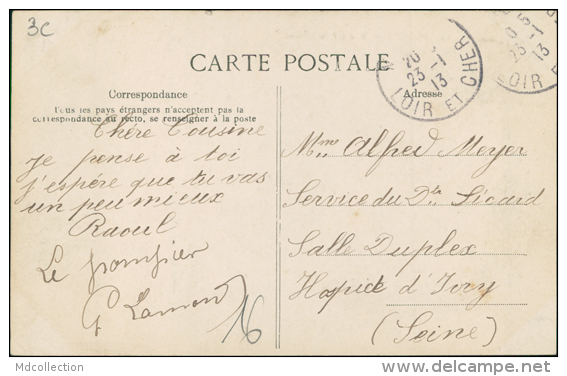 3C
CARTE POSTALE
20
23-1
13
LOIR ET CHER
23-1
13
LOIR E
Correspondance
Adresse
Tous les pays étrangers n'acceptent pas la
correspondance au recto, se renseigner à la poste
Chère Cousine
Je pense à toi
j'espère que tu vas
un peu mieux
Raoul
Le pompier
16
Mme Alfred Meyer
Service du Dr Sicard
Salle Duplex
Hospice d'Ivry
(Seine)
Mdcollection
www.delcampe.net